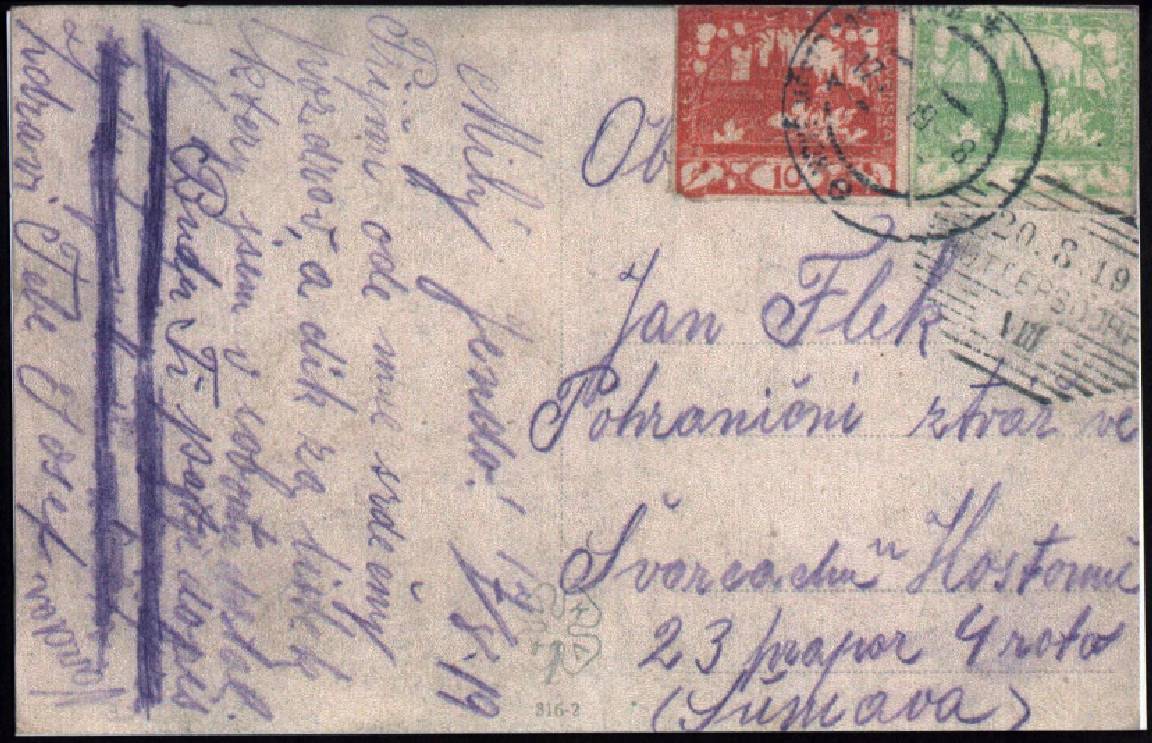 Milý Jendo! 17/8-19
Přijmi ode mne srdečný
pozdrav, a dík za lístek
který jsem v sobotu dostal.
Budu Ti psáti dopis
Tebe Josef
Nazdar
Ob
Jan Flek
Pohraniční stráž ve
23 prapor 4 rota
(Šumava)
10
20.8.19
VIII
316-2